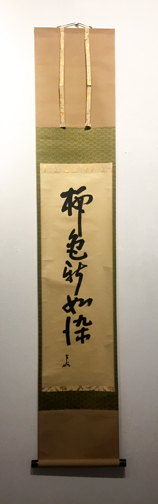 柳色新如染